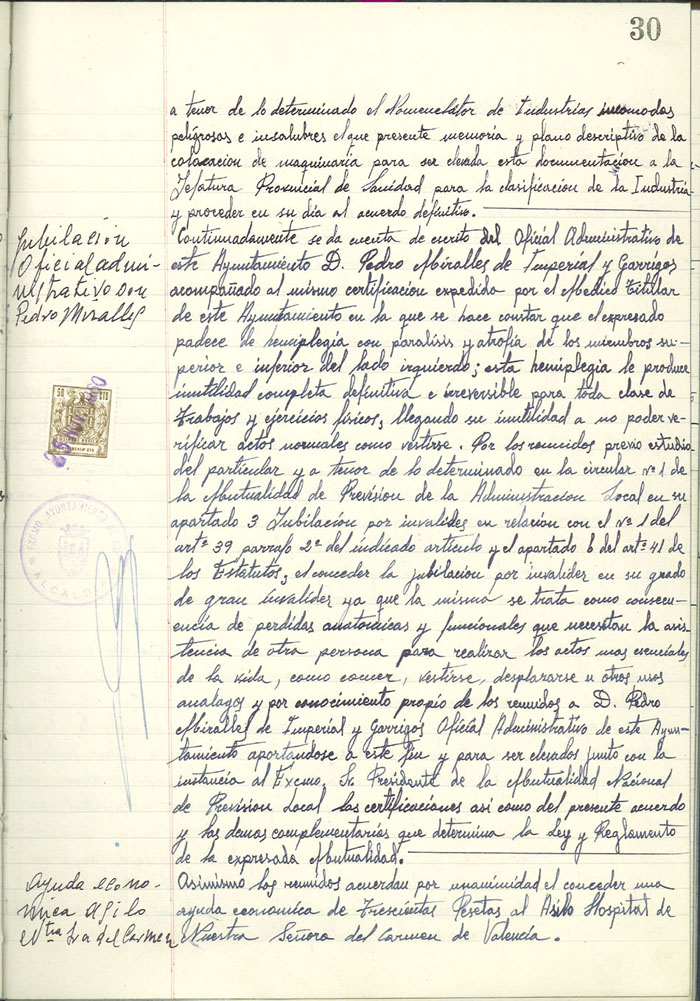 30
a tenor de lo determinado el Nomenclátor de Industrias incomodas
peligrosas e insalubres el que presente memoria y plano descriptivo de la
colocación de maquinaria para ser elevada esta documentación a la
Jefatura Provincial de Sanidad para la clasificación de la Industria
y proceder en su día al acuerdo definitivo.
Jubilación
Oficial admi-
nistrativo Don
Pedro Miralles
Continuadamente se da cuenta de escrito del Oficial Administrativo de
este Ayuntamiento D. Pedro Miralles de Imperial y Garrigos
acompañado al mismo certificacion expedida por el Medico Titular
de este Ayuntamiento en la que se hace constar que el expresado
padece de hemiplegía con paralisis y atrofía de los miembros su-
perior e inferior del lado izquierdo; esta hemiplegia le produce
inutilidad completa definitiva e irreversible para toda clase de
trabajos y ejercicios físicos, llegando su inutilidad a no poder ve-
rificar actos normales como vestirse. Por los reunidos previo estudio
del particular y a tenor de lo determinado en la circular nº 1 de
la Mutualidad de Prevision de la Administracion Local en su
apartado 3 Jubilación por invalides en relación con el Nº 1 del
artº 39 parrafo 2º del indicado articulo y el apartado b del artº 41 de
los Estatutos, el conceder la jubilacion por invalidez en su grado
de gran invalidez ya que la misma se trata como consecu-
encia de perdidas anatomicas y funcionales que necesitan la asis-
tencia de otra persona para realizar los actos mas esenciales
de la vida, como comer, vestirse, desplazarse u otros mas
analagos y por conocimiento propio de los reunidos a D. Pedro
Miralles de Imperial y Garrigos Oficial Administrativo de este Ayun-
tamiento aportandose a este fin y para ser elevados junto con la
instancia al Excmo. Sr. Presidente de la Mutualidad Nacional
de Prevision Local las certificaciones asi como del presente acuerdo
y las demas complementarias que determina la Ley y Reglamento
de la expresada Mutualidad.
Ayuda econo-
mica Asilo
Ntra Sra del Carmen
Asimismo los reunidos acuerdan por unanimidad el conceder una
ayuda economica de Trescientas Pesetas al Asilo Hospital de
Nuestra Señora del Carmen de Valencia.
50 CTS
ALCALDIA